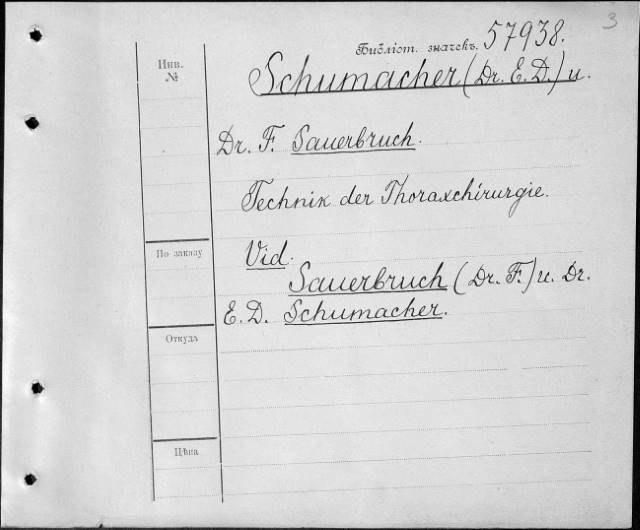 3
Библіот. значекъ. 57938.
Инв.
№
Schumacher (Dr. E. D.) u.
Dr. F. Sauerbruch.
Technik der Thoraxchirurgie.
По заказу
Vid.
Sauerbruch (Dr. F.) u. Dr.
E. D. Schumacher.
Откуда
Цѣна